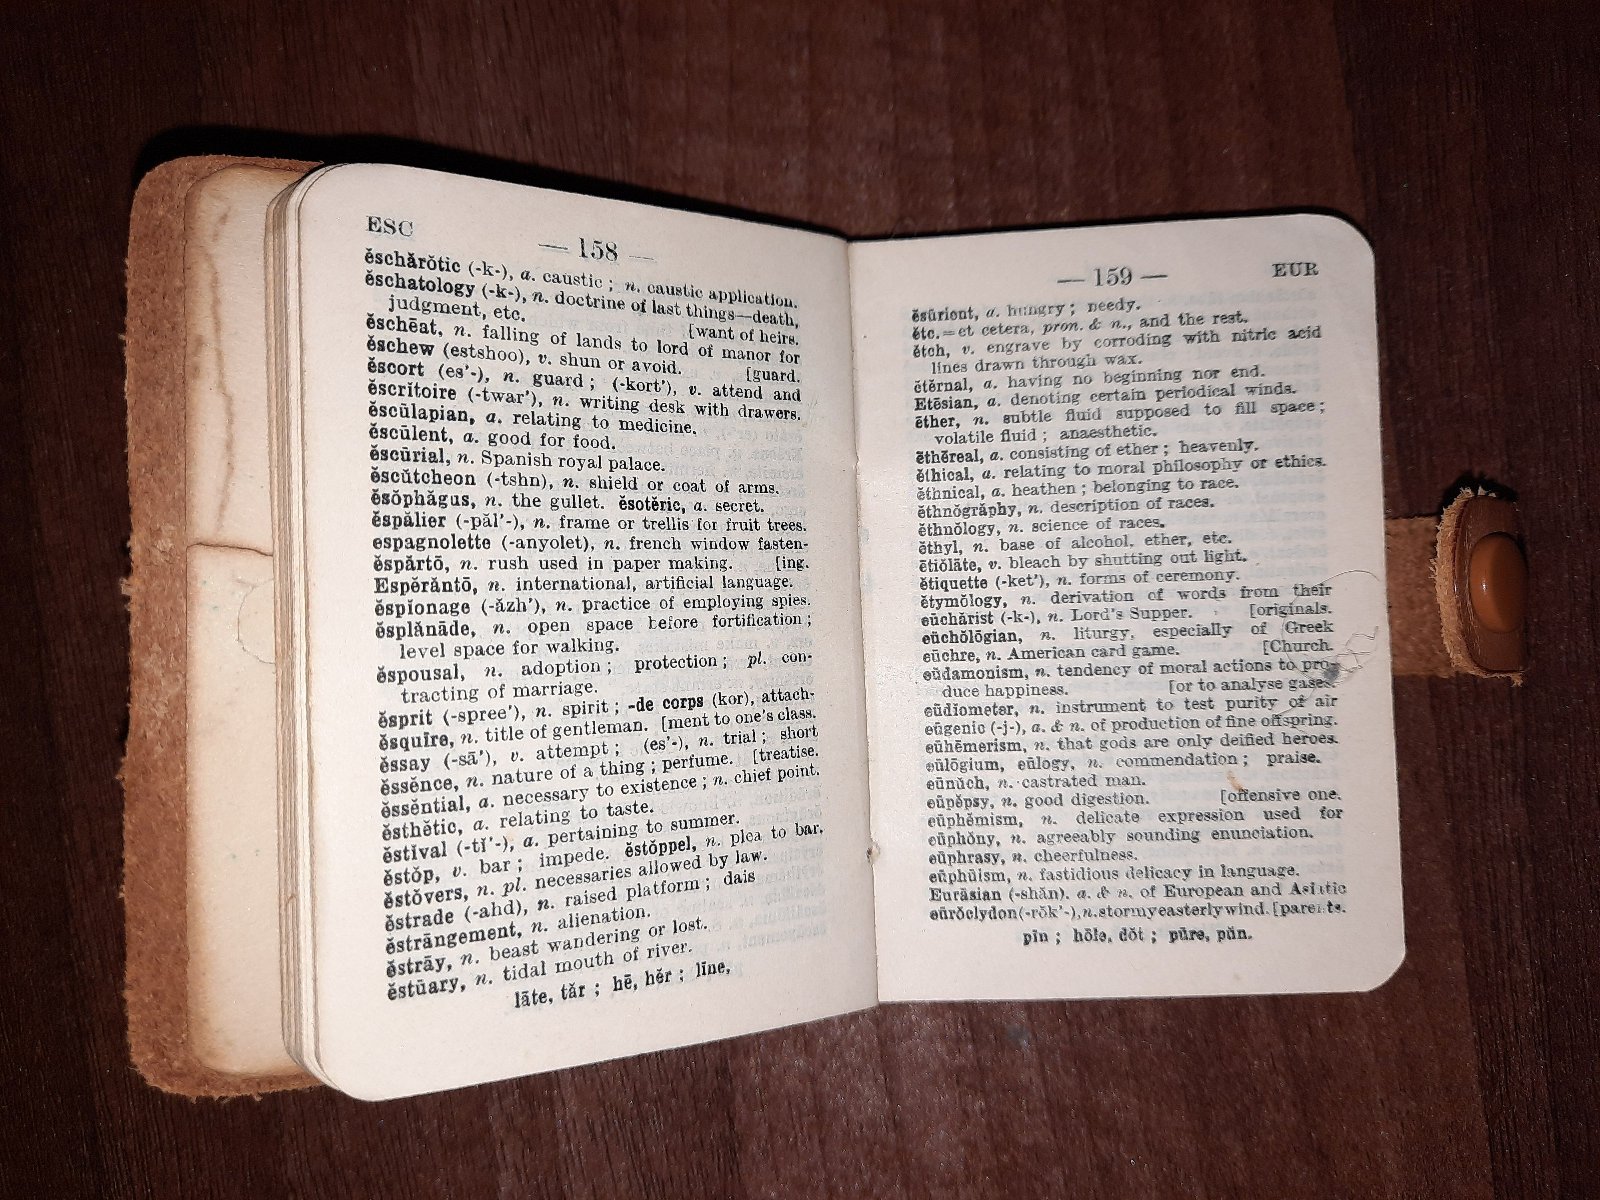 ESC
— 158 —
ĕschărŏtic (-k-), a. caustic ; n. caustic application.
ĕschatology (-k-), n. doctrine of last things—death,
judgment, etc. [want of heirs.
ĕschēat, n. falling of lands to lord of manor for
ĕschew (estshoo), v. shun or avoid. [guard.
ĕscort (es'-), n. guard ; (-kort'), v. attend and
ĕscrĭtoire (-twar'), n. writing desk with drawers.
ĕscūlapian, a. relating to medicine.
ĕscūlent, a. good for food.
ĕscūrial, n. Spanish royal palace.
ĕscŭtcheon (-tshn), n. shield or coat of arms.
ĕsŏphăgus, n. the gullet. ĕsotĕric, a. secret.
ĕspălier (-păl'-), n. frame or trellis for fruit trees.
espagnolette (-anyolet), n. french window fasten-
ĕspărtō, n. rush used in paper making. [ing.
Espĕrăntō, n. international, artificial language.
ĕspĭonage (-ăzh'), n. practice of employing spies.
ĕsplănāde, n. open space before fortification ;
level space for walking.
ĕspousal, n. adoption ; protection ; pl. con-
tracting of marriage.
ĕsprit (-spree'), n. spirit ; -de corps (kor), attach-
ĕsquire, n. title of gentleman. [ment to one's class.
ĕssay (-sā'), v. attempt ; (es'-), n. trial ; short
ĕssĕnce, n. nature of a thing ; perfume. [treatise.
ĕssĕntial, a. necessary to existence ; n. chief point.
ĕsthĕtic, a. relating to taste.
ĕstival (-tĭ'-), a. pertaining to summer.
ĕstŏp, v. bar ; impede. ĕstŏppel, n. plea to bar.
ĕstŏvers, n. pl. necessaries allowed by law.
ĕstrade (-ahd), n. raised platform ; dais
ĕstrāngement, n. alienation.
ĕstrāy, n. beast wandering or lost.
ĕstūary, n. tidal mouth of river.
lāte, tăr ; hē, hĕr ; līne,
— 159 —
EUR
ĕsūrient, a. hungry ; needy.
ĕtc. = et cetera, pron. & n., and the rest.
ĕtch, v. engrave by corroding with nitric acid
lines drawn through wax.
ētĕrnal, a. having no beginning nor end.
Etēsian, a. denoting certain periodical winds.
ēther, n. subtle fluid supposed to fill space ;
volatile fluid ; anaesthetic.
ēthēreal, a. consisting of ether ; heavenly.
ĕthical, a. relating to moral philosophy or ethics.
ĕthnical, a. heathen ; belonging to race.
ĕthnŏgrăphy, n. description of races.
ĕthnŏlogy, n. science of races.
ĕthyl, n. base of alcohol, ether, etc.
ētĭŏlāte, v. bleach by shutting out light.
ĕtiquette (-ket'), n. forms of ceremony.
ĕtymŏlogy, n. derivation of words from their
eūchărist (-k-), n. Lord's Supper. [originals.
eūchŏlōgian, n. liturgy, especially of Greek
eūchre, n. American card game. [Church.
eūdamonism, n. tendency of moral actions to pro-
duce happiness. [or to analyse gases.
eūdiometer, n. instrument to test purity of air
eūgenic (-j-), a. & n. of production of fine offspring.
eūhēmerism, n. that gods are only deified heroes.
eūlōgium, eūlogy, n. commendation ; praise.
eūnŭch, n. castrated man.
eūpĕpsy, n. good digestion. [offensive one.
eūphĕmism, n. delicate expression used for
eūphŏny, n. agreeably sounding enunciation.
eūphrasy, n. cheerfulness.
eūphūism, n. fastidious delicacy in language.
Eurāsian (-shăn). a. & n. of European and Asiatic
eūrŏclydon (-rŏk'-), n. stormy easterly wind. [parents.
pĭn ; hōle, dŏt ; pūre, pŭn.